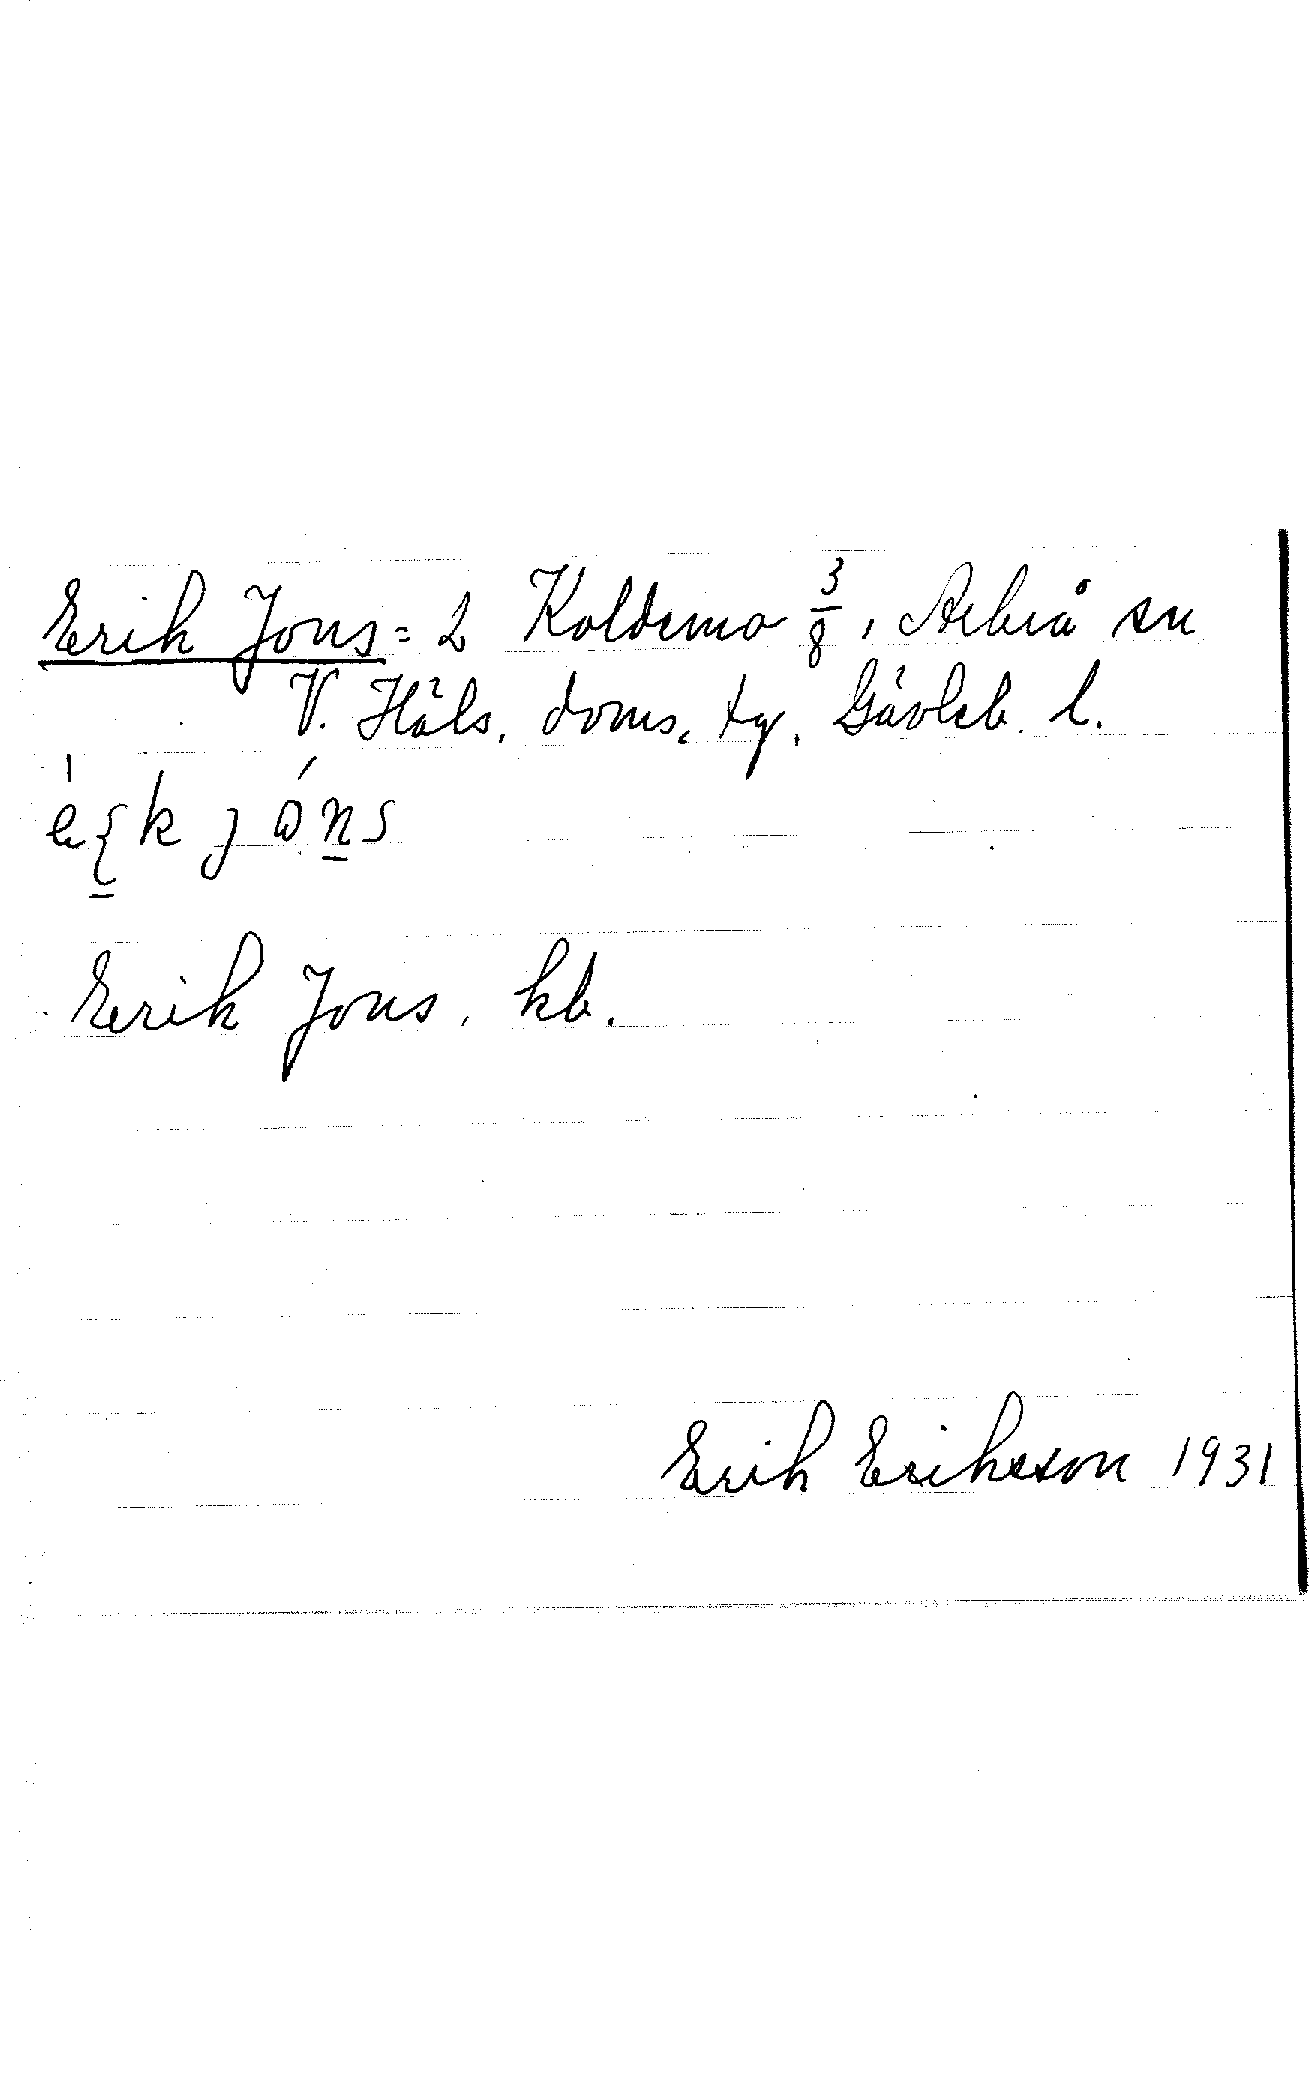 Erik Jons = 2 Koldemo 3/8, Arbrå sn
V. Häls. doms. tg. Gävleb. l.
Erik Jons. kb.
Erik Eriksson 1931